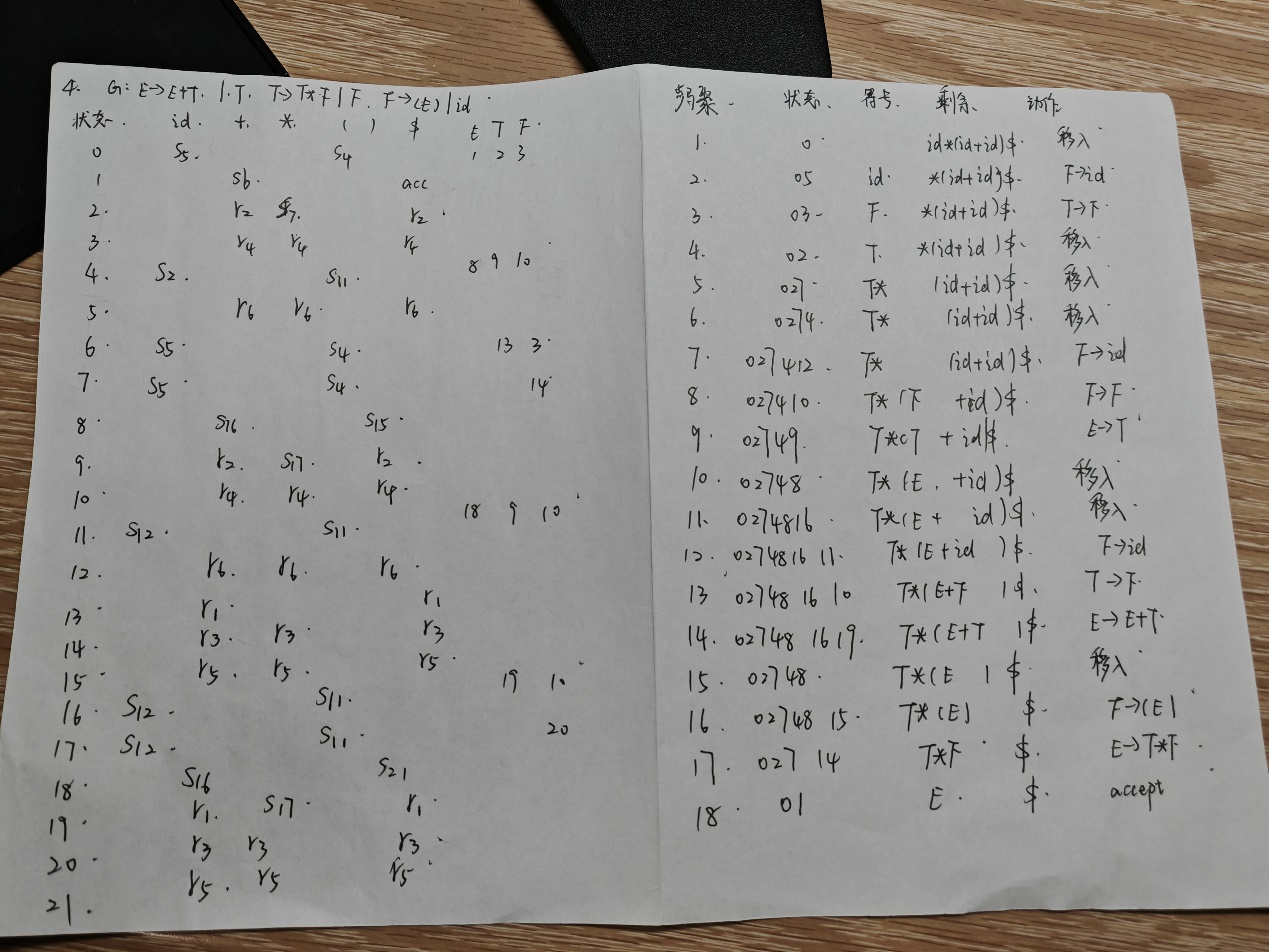 4. G: E→E+T. |.T. T→T*F|F. F→(E)|id
状态. id. +. *. ( ) $ E T F.
0 S5. S4 1 2 3
1 S6. acc
2. r2 S7. r2.
3. r4 r4 r4
4. S2. S11. 8 9 10
5. r6 r6. r6.
6 S5 S4. 13 3.
7 S5 S4. 14
8. S16. S15.
9. r2. S17. r2.
10 r4. r4. r4.
11. S12. S11. 18 9 10
12. r6. r6. r6.
13 r1. r1
14. r3. r3. r3
15 r5. r5. r5.
16 S12. S11. 19 10
17. S12. S11. 20
18 S16 S21
19. r1. S17. r1.
20. r3 r3 r3.
21. r5. r5 r5
状态. 符号. 剩余. 动作
1. 0 id*(id+id)$. 移入
2. 05 id. *(id+id)$. F→id.
3. 03- F. *(id+id)$. T→F.
4. 02- T. *(id+id)$. 移入.
5. 027. T* (id+id)$. 移入
6. 0274. T* (id+id)$. 移入
7. 027412. T* (id+id)$. F→id
8. 027410. T*(F +id)$. F→F.
9. 02749. T*(T +id)$. E→T
10. 02748. T*(E. +id)$ 移入
11. 0274816. T*(E+ id)$. 移入.
12. 0274816 11. T*(E+id )$. F→id
13 02748 16 10 T*(E+F )$. T→F.
14. 02748 16 19. T*(E+T )$. E→E+T.
15. 02748. T*(E ) $. 移入
16. 02748 15. T*(E) $. F→(E)
17. 027 14 T*F $. E→T*F
18. 01 E. $. accept